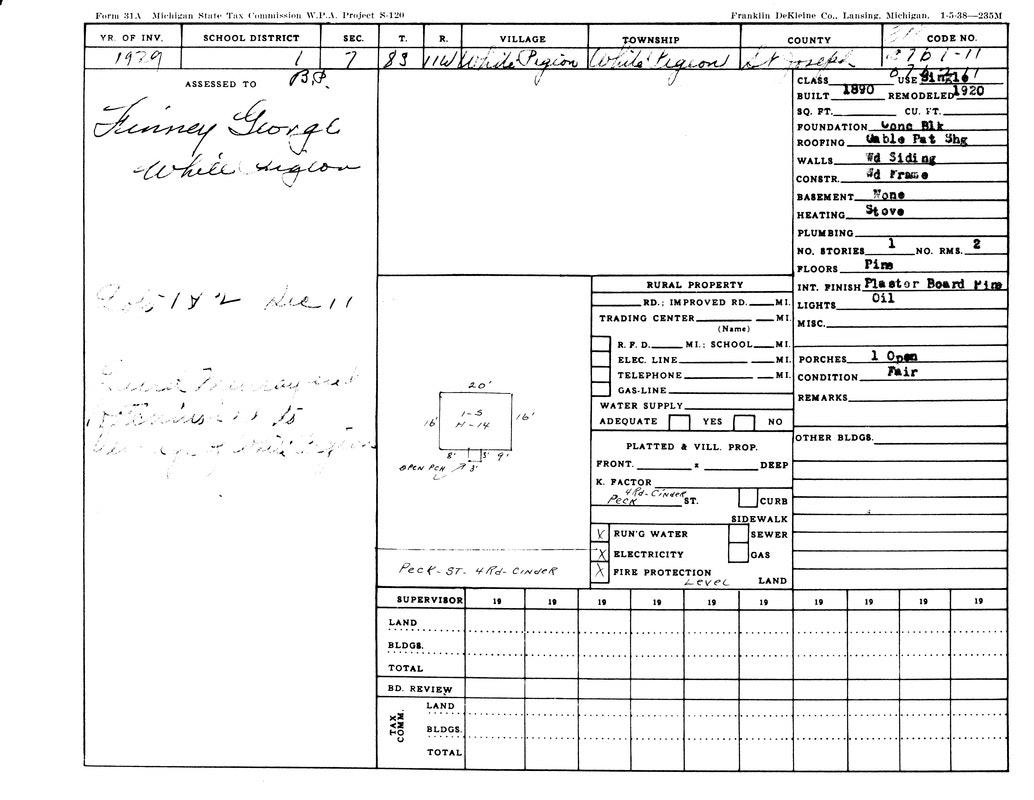 Form 31A Michigan State Tax Commission W.P.A. Project S-120 Franklin DeKleine Co., Lansing, Michigan. 1-5-38—235M
YR. OF INV. SCHOOL DISTRICT SEC. T. R. VILLAGE TOWNSHIP COUNTY CODE NO.
1 7 8S 11W White Pigeon White Pigeon St Joseph
ASSESSED TO
Finney George
White Pigeon
CLASS USE Single
BUILT 1890 REMODELED 1920
SQ. FT. CU. FT.
FOUNDATION Conc Blk
ROOFING Gable Pat Shg
WALLS Wd Siding
CONSTR. Wd Frame
BASEMENT None
HEATING Stove
PLUMBING
NO. STORIES 1 NO. RMS. 2
FLOORS Pine
INT. FINISH Plastor Board Pine
LIGHTS Oil
MISC.
PORCHES 1 Open
CONDITION Fair
REMARKS
OTHER BLDGS.
Lots 1 & 2 Sec 11
20'
16' 1-S 16'
H-14
8' 5' 9'
OPEN PCH 3'
PECK-ST. 4Rd-CINDER
RURAL PROPERTY
RD.; IMPROVED RD. MI.
TRADING CENTER MI.
(Name)
R. F. D. MI.; SCHOOL MI.
ELEC. LINE MI.
TELEPHONE MI.
GAS-LINE
WATER SUPPLY
ADEQUATE YES NO
PLATTED & VILL. PROP.
FRONT. x DEEP
K. FACTOR
4Rd-CINDER
PECK ST. CURB
SIDEWALK
X RUN'G WATER SEWER
X ELECTRICITY GAS
X FIRE PROTECTION
LEVEL LAND
SUPERVISOR 19 19 19 19 19 19 19 19 19 19
LAND
BLDGS.
TOTAL
BD. REVIEW
TAX COMM.
LAND
BLDGS.
TOTAL